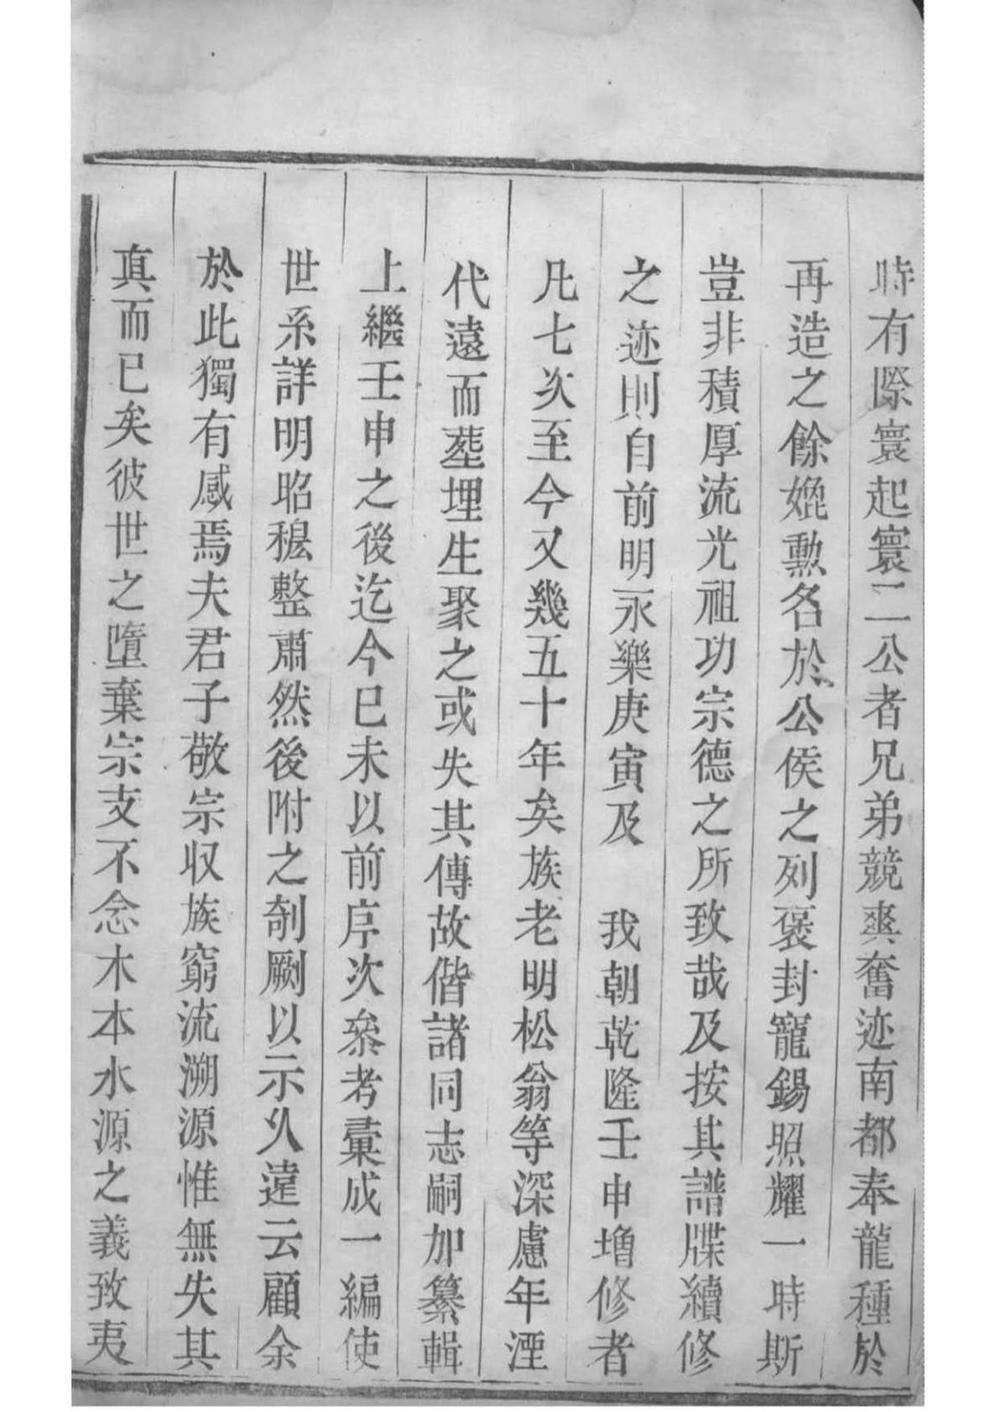 時有際寰起寰二公者兄弟競爽奮迹南都奉龍種於
再造之餘媲勳名於公侯之列褒封寵錫照耀一時斯
豈非積厚流光祖功宗德之所致哉及按其譜牒續修
之迹則自前明永樂庚寅及　我朝乾隆壬申增修者
凡七次至今又幾五十年矣族老明松翁等深慮年湮
代遠而塟埋生聚之或失其傳故偕諸同志嗣加纂輯
上繼壬申之後迄今已未以前序次叅考彚成一編使
世系詳明昭穆整肅然後附之剞劂以示久遠云顧余
於此獨有感焉夫君子敬宗収族窮流溯源惟無失其
真而已矣彼世之墮棄宗支不念木本水源之義致夷